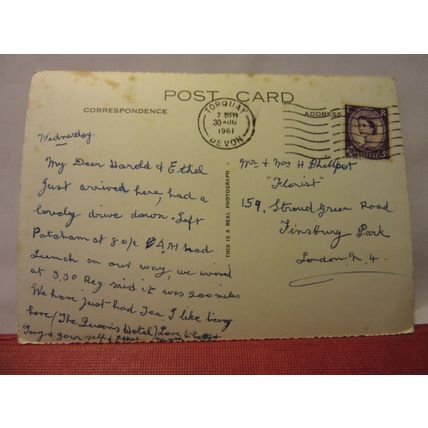 POST CARD
CORRESPONDENCE
ADDRESS
TORQUAY
7 PM
30 AUG
1961
DEVON
Wednesday
My Dear Harold & Ethel
Just arrived here, had a
lovely drive down. Left
Patcham at 8 o/c AM had
Lunch on our way, we arrived
at 3,30 Reg said it was 200 miles
We have just had Tea I like being
here (The Queens Hotel) Love to
Tony & your self & Ethel
THIS IS A REAL PHOTOGRAPH
Mr & Mrs H Phillpot
"Florist"
159, Stroud Green Road
Finsbury Park
London N. 4.